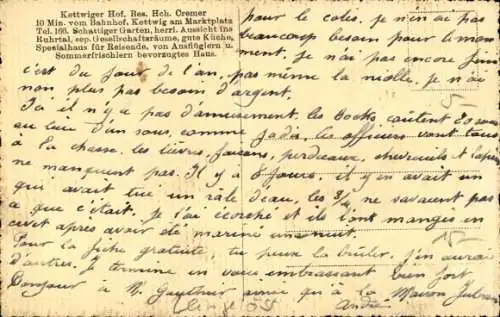 Kettwiger Hof, Bes. Hch. Cremer
10 Min. vom Bahnhof. Kettwig am Marktplatz
Tel. 166. Schattiger Garten, herrl. Aussicht ins
Ruhrtal, sep. Gesellschaftsräume, gute Küche,
Spezialhaus für Reisende, von Ausflüglern u.
Sommerfrischlern bevorzugtes Haus.
pour le coles. je n'en ai pas
beaucoup besoin pour le mo
ment. Je n'ai pas encore fini
c'est du jour de l'an, pas même la niolle, je n'ai
non plus pas besoin d'argent.
Ici il n'y a pas d'amusement. les bocks coûtent
au lieu d'un sous, comme jadis, les officiers vont tous
à la chasse. les lièvres, faisans, perdreaux, chevreuils et lapins
ne manquent pas. Il y a 8 jours, il y en avait un
qui avait tué un râle d'eau, les 3/4 ne savaient pas
a que c'était. Je l'ai écorché et ils l'ont mangés en
civet après avoir été mariné une nuit.
Pour la fiche gratuite, tu peux la brûler, j'en aurai
d'autres. Je termine en vous embrassant bien fort
Bonjour à M. Gauthier ainsi qu'à la Maison
André